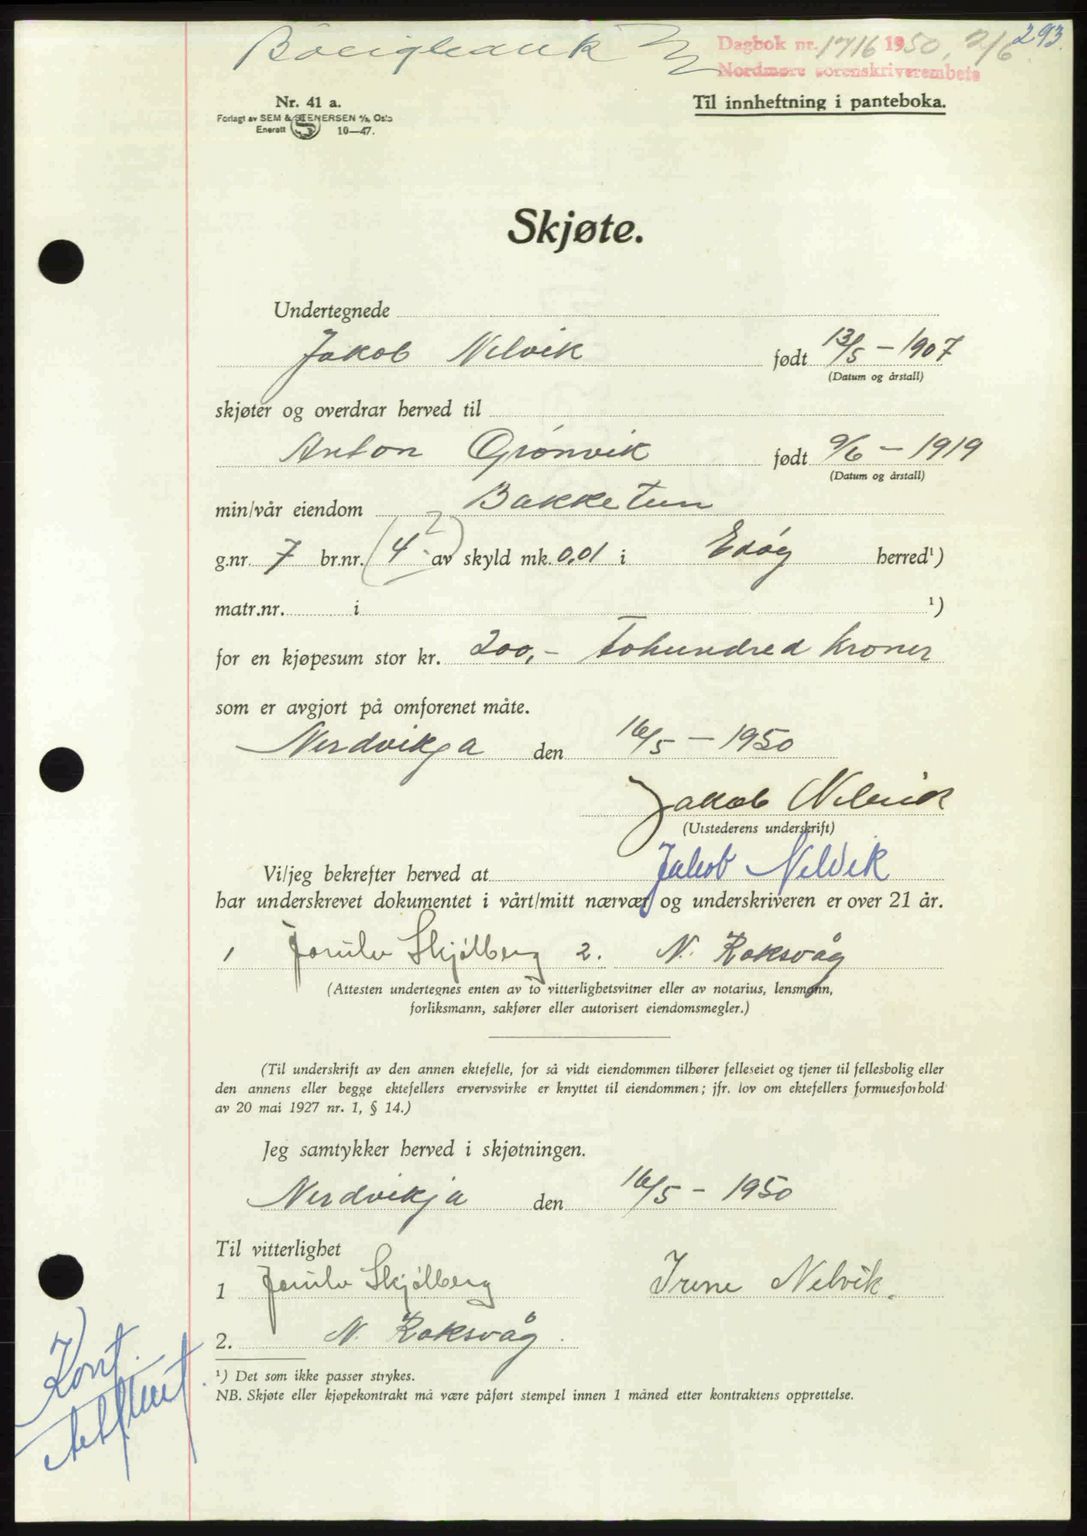 Boligbank
293.
Dagbok nr. 1716 1950, 2/6
Nordmøre sorenskriverembete
Nr. 41 a.
Forlagt av SEM & STENERSEN A/S, Oslo
Enerett S 10—47.
Til innheftning i panteboka.
Skjøte.
Undertegnede
Jakob Nelvik født 13/5 - 1907
(Datum og årstall)
skjøter og overdrar herved til
Anton Grønvik født 9/6 - 1919
(Datum og årstall)
min/vår eiendom Bakketun
g.nr. 7 br.nr. (4.2) av skyld mk. 0,01 i Edøy herred¹)
matr.nr. i ¹)
for en kjøpesum stor kr. 200,- Tohundred kroner
som er avgjort på omforenet måte.
Nerdvikja den 16/5 - 1950
Jakob Nelvik
(Utstederens underskrift)
Vi/jeg bekrefter herved at Jakob Nelvik
har underskrevet dokumentet i vårt/mitt nærvær og underskriveren er over 21 år.
1 Skjølberg 2. N. Roksvåg
(Attesten undertegnes enten av to vitterlighetsvitner eller av notarius, lensmann,
forliksmann, sakfører eller autorisert eiendomsmegler.)
(Til underskrift av den annen ektefelle, for så vidt eiendommen tilhører felleseiet og tjener til fellesbolig eller
den annens eller begge ektefellers ervervsvirke er knyttet til eiendommen; jfr. lov om ektefellers formuesforhold
av 20 mai 1927 nr. 1, § 14.)
Jeg samtykker herved i skjøtningen.
Nerdvikja den 16/5 - 1950
Til vitterlighet
1 Skjølberg Irene Nelvik.
2. N. Roksvåg.
¹) Det som ikke passer strykes.
NB. Skjøte eller kjøpekontrakt må være påført stempel innen 1 måned etter kontraktens opprettelse.
Kont.